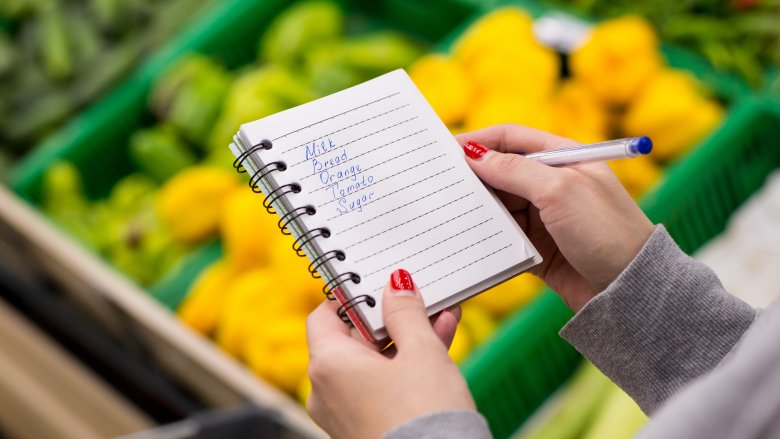 Milk
Bread
Orange
Tomato
Sugar